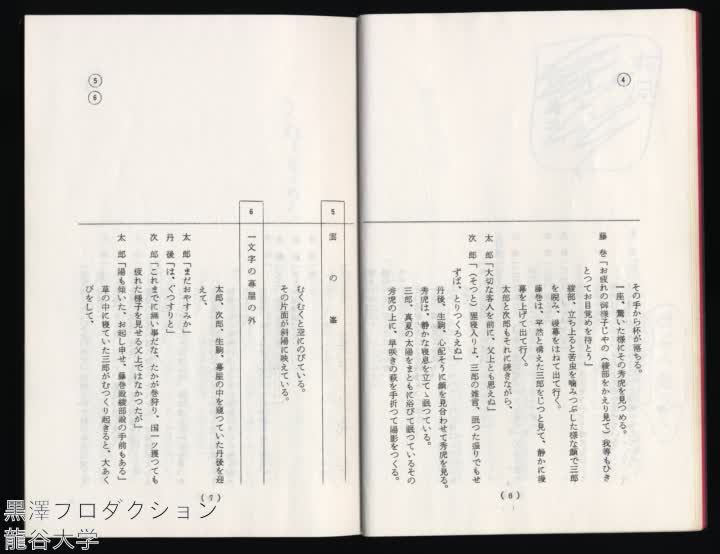 ④
その手から杯が落ちる。
一座、驚いた様にその秀虎を見つめる。
藤　巻「お疲れの御様子じゃの（綾部をかえり見て）我等もひき
とってお目覚めを待とう」
綾部、立ち上ると苦虫を噛みつぶした様な顔で三郎
を睨み、後幕をはねて出て行く。
藤巻は、平然と構えた三郎をじっと見て、静かに後
幕を上げて出て行く。
太郎と次郎もそれに続きながら、
太　郎「大切な客人を前に、父上とも思えぬ」
次　郎「（そっと）狸寝入りよ、三郎の雑言、眠った振りでもせ
ずば、とりつくろえぬ」
丹後、生駒、心配そうに顔を見合わせて秀虎を見る。
秀虎は、静かな寝息を立てゝ眠っている。
三郎、真夏の太陽をまともに浴びて眠っているその
秀虎の上に、早咲きの萩を手折って陽影をつくる。
（6）
⑤
⑥
5　雲の峯
むくむくと空にのびている。
その片面が斜陽に映えている。
6　一文字の幕屋の外
太郎、次郎、生駒、幕屋の中を窺っていた丹後を迎
えて、
太　郎「まだおやすみか」
丹　後「は、ぐっすりと」
次　郎「これまでに無い事だな、たかが巻狩り、国一ツ獲っても
疲れた様子を見せる父上ではなかったが」
太　郎「陽も傾いた、お起し申せ、藤巻殿綾部殿の手前もある」
草の中に寝ていた三郎がむっくり起きると、大あく
びをして、
（7）
黒澤プロダクション
龍谷大学